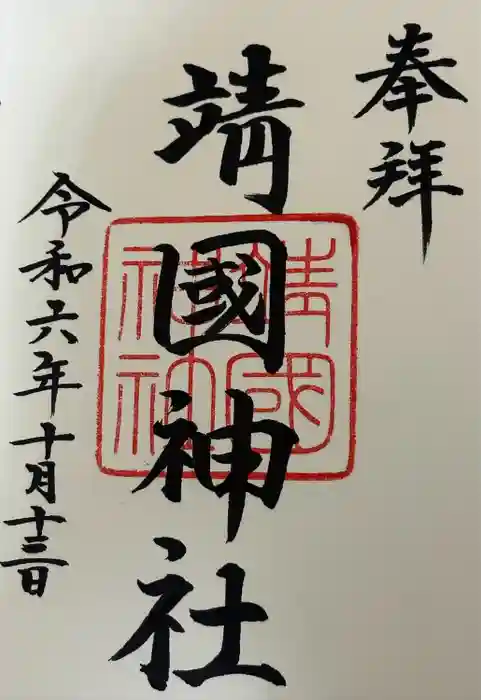 奉拝
靖國神社
靖國
神社
令和六年十月十三日